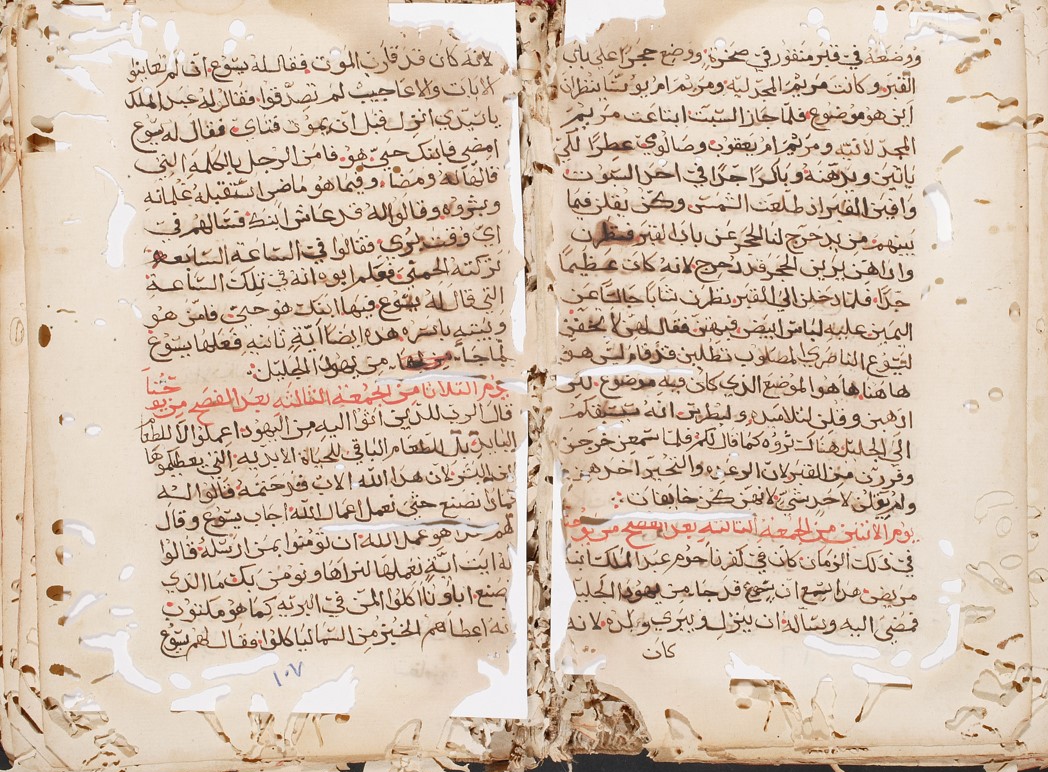 ووضعه في قبر منقور في صخرة ووضع حجرا على باب
القبر وكانت مريم المجدليه ومريم ام يوسا ينظران
اين هو موضوع فلما جاز السبت ابتاعت مريم
المجدلانيه ومريم ام يعقوب وصالومي عطرا لكي
ياتين ويدهنه وباكرا جدا في احد السبوت
وافين القبر اذ طلعت الشمس وكن يقلن فيما
بينهم من يدحرج لنا الحجر عن باب القبر فنظرن
واذا هن يرين الحجر قد دحرج لانه كان عظيما
جدا فلما دخلن الي القبر نظرن شابا جالسا عن
اليمين عليه لباس ابيض فبهتن فقال لهن لا تخفن
ليسوع الناصري المصلوب تطلبن قد قام ليس هو
هاهنا هاهوا الموضع الذي كان فيه موضوع لكن
اذهبن وقلن لتلاميذه ولبطرس انه يسبقكم
الي الجليل هناك ترونه كما قال لكم فلما سمعن خرجن
وفررن من القبر لان الرعده والتحير اخدهن
ولم يقلن لاحد شي لانهن كن خايفات
يوم الاثنين من الجمعه الثالثه بعد الفصح من يوحنا
في ذلك الزمان كان في كفرناحوم عبد الملك ابنه
مريض هذا سمع ان يسوع قد جا من يهودا الجليل
فمضي اليه وساله ان ينزل ويبري ولده لانه
كان
لانه كان قد قارب الموت فقال له يسوع ان لم تعاينوا
الايات والاعاجيب لم تصدقوا فقال له عبد الملك
ياسيدي انزل قبل ان يموت فتاي فقال له يسوع
امضي فابنك حيي هو فامن الرجل بالكلمه التي
قالها له ومضا وفيما هو ماضي استقبله غلمانه
وبشروه وقالوا له قد عاش ابنك فسالهم في
اي وقت بري فقالوا في الساعه السابعه
تركته الحمي فعلم ابوه انه في تلك الساعه
التي قال له يسوع فيها ابنك هو حيي فامن هو
وبيته باسره هذه ايضا ايه ثانيه فعلها يسوع
لما جا من يهودا الجليل
يوم الثلاثا من الجمعه الثالثه بعد الفصح من يوحنا
قال الرب للذين اتوا اليه من اليهود اعملوا لا للطعام
البايد بل للطعام الباقي للحياه الابديه التي يعطيكموها
ابن البشر لان هذا الله الاب قد ختمه قالوا له
ماذا نصنع حتي نعمل اعمال الله اجاب يسوع وقال
لهم هذا هو عمل الله ان تومنوا بمن ارسله قالوا
له ايت ايه تعملها لنراها ونومن بك ما الذي
تصنع اباونا اكلوا المن في البريه كما هو مكتوب
انه اعطاهم الخبز من السما لياكلوا فقال لهم يسوع
١٠٧